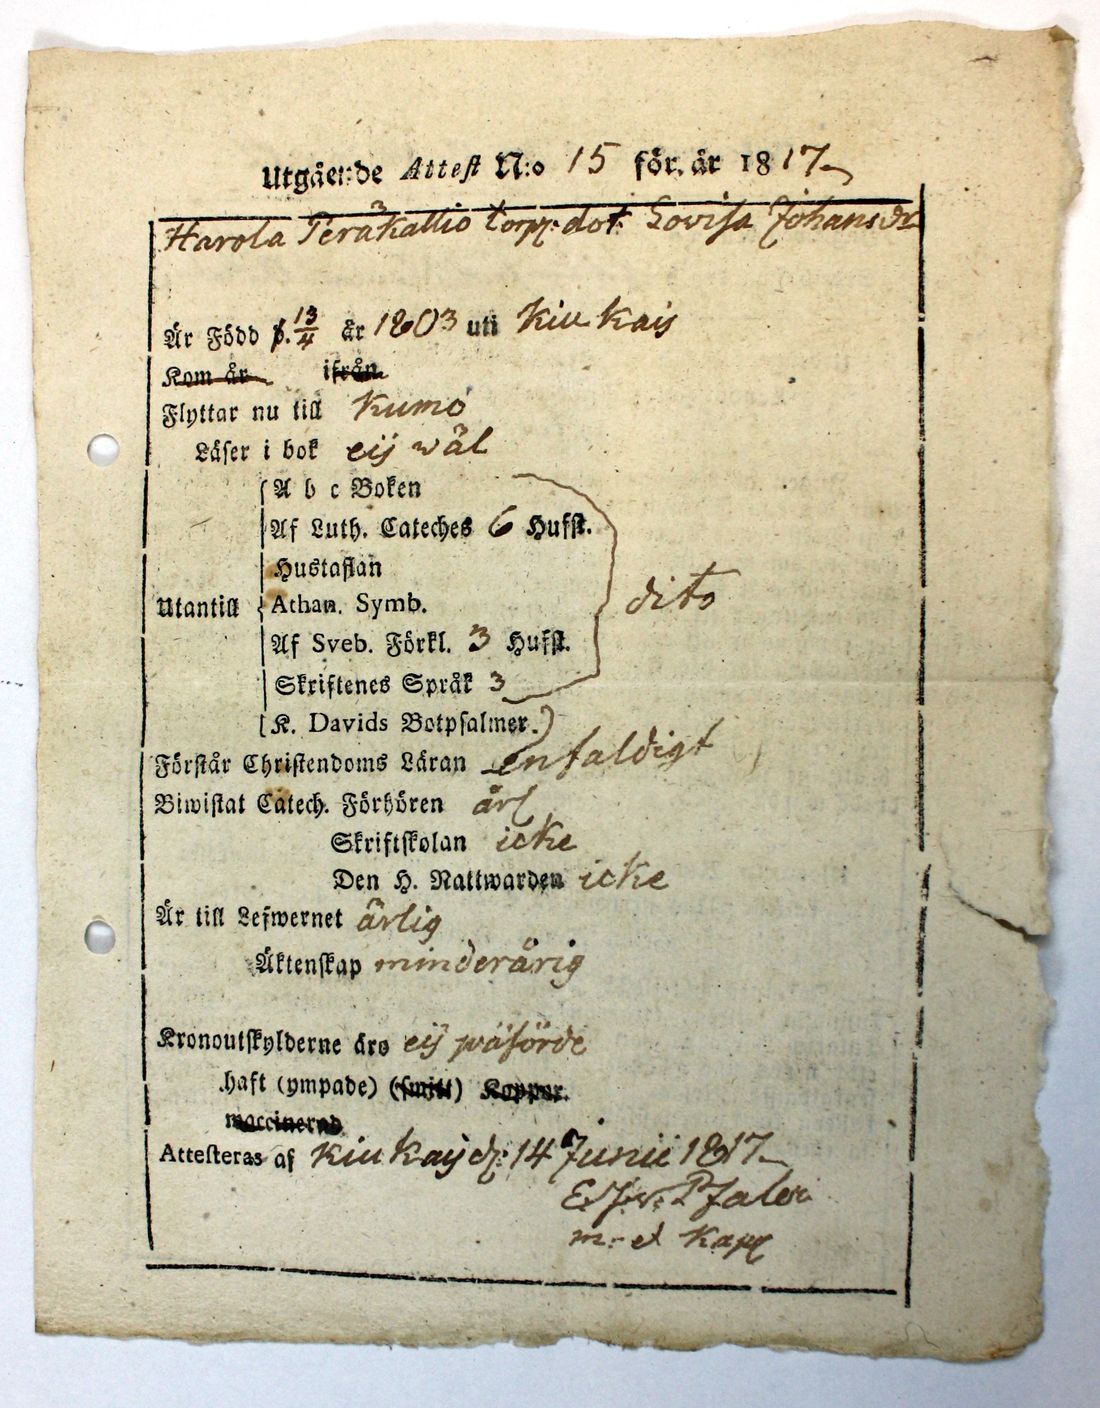 Utgående Attest N:o 15 för år 1817
Harola Peräkallio torp: dot: Lovisa Johansdr
Är Född d. 13/4 år 1803 uti Kiukais
Kom år ifrån
Flyttar nu till Kumo
Läser i bok eij wäl
A b c Boken
Af Luth. Cateches 6 Hufst.
Hustaflan
Utantill Athan. Symb. dito
Af Sveb. Förkl. 3 Hufst.
Skriftenes Språk 3
K. Davids Botpsalmer.
Förstår Christendoms Läran enfaldigt
Biwistat Catech. Förhören årl
Skriftskolan icke
Den H. Nattwarden icke
Är till Lefwernet ärlig
Äktenskap minderårig
Kronoutskylderne äro eij påförde
haft (ympade) (smitt) Koppor.
vaccinerad
Attesteras af Kiukais d: 14 Junii 1817
m: et Kapl